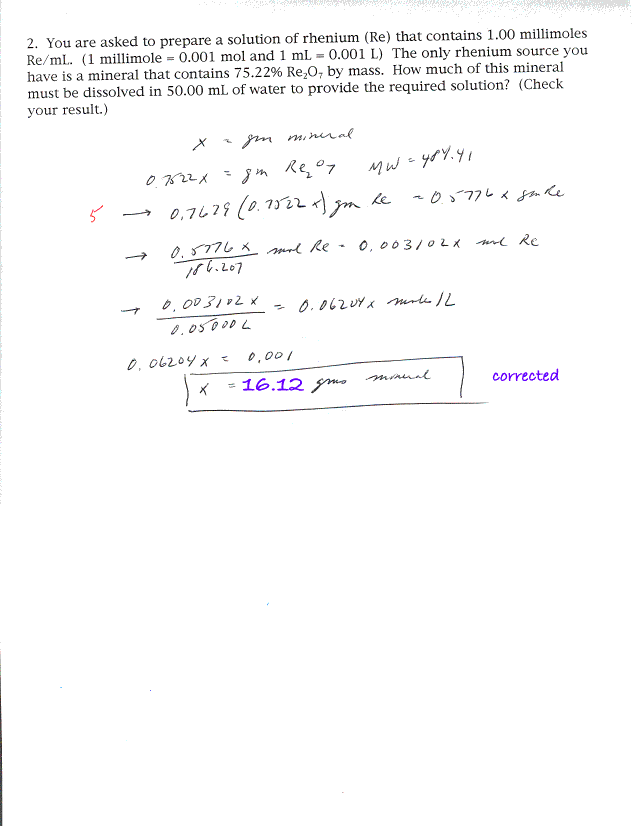 2. You are asked to prepare a solution of rhenium (Re) that contains 1.00 millimoles
Re/mL. (1 millimole = 0.001 mol and 1 mL = 0.001 L) The only rhenium source you
have is a mineral that contains 75.22% Re₂O₇ by mass. How much of this mineral
must be dissolved in 50.00 mL of water to provide the required solution? (Check
your result.)
x = gm mineral
0.7522x = gm Re₂O₇ MW = 484.41
5 → 0.7679 (0.7522 x) gm Re = 0.5776 x gm Re
→ 0.5776 x / 186.207 mol Re = 0.003102x mol Re
→ 0.003102 x / 0.05000 L = 0.06204x moles/L
0.06204 x = 0.001
x = 16.12 gms mineral corrected